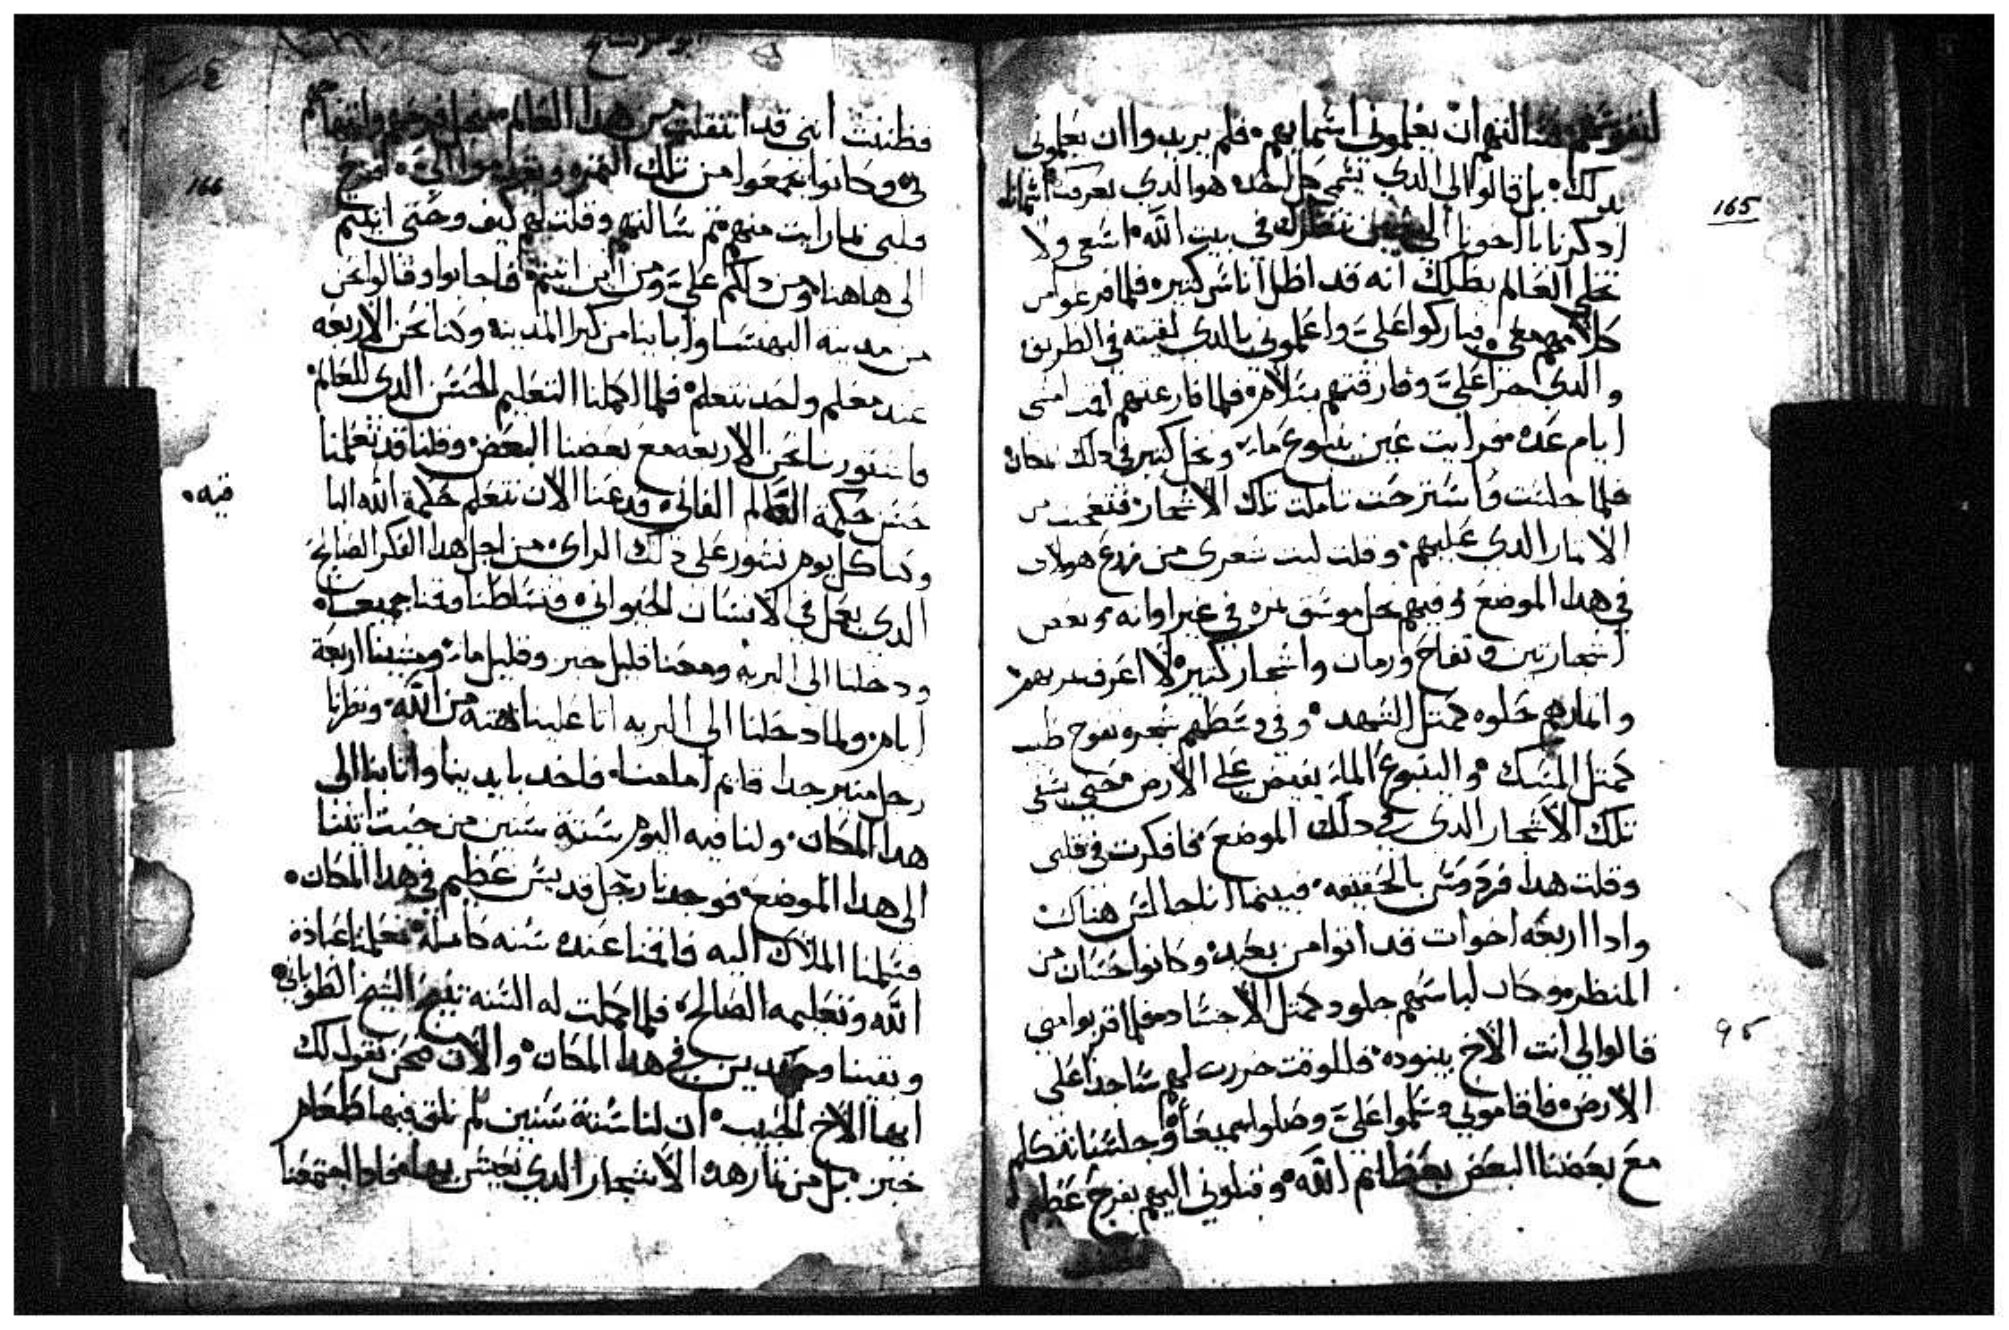 165
لنفوسهم فسالتهم ان يعلموني اسمايهم فلم يريدوا ان يعلموني
بدلك بل قالوا لي الدي يسمي كل احد هو الدي يعرف اسمانا
ادكرنا يا اخونا الي حين ننظرك في بيت الله اسعي ولا
تخلي العالم يطليك انه قد اظل اناس كثيره فلما فرغوا من
كلامهم معي باركوا علي واعلموني بالدي لقيته في الطريق
والدي جرا علي وفارقتهم بسلام فلما فارقتهم اقمت امشي
ايام عده فرايت عين ينبوع ماء ونخل كثير في دلك المكان
فلما جلست واسترحت تاملت تلك الاشجار فتعجبت من
الاثمار الدي عليهم وقلت ليت شعري من زرع هولاي
في هدا الموضع وفيهم نخل موسق ثمره في غير اوانه وبعض
اشجار تين وتفاح ورمان واشجار كثيره لا اعرف
واثمارهم حلوه كمثل الشهد وفي وسطهم شجره تفوح طيب
كمثل المسك والينبوع الماء يفيض علي الارض حتي يسقي
تلك الاشجار الدي في دلك الموضع فافكرت في قلبي
وقلت هدا فردوس بالحقيقه فبينما انا جالس هناك
وادا اربعه اخوات قد اتوا من بعيد وكانوا حسان من
المنظر وكان لباسهم جلود كمثل الاجساد فلما قربوا مني
قالوا لي انت الاخ بينوده فللوقت خررت لهم ساجدا علي
الارض فاقاموني وسلموا علي وصلوا جميعا وجلسنا نتكلم
مع بعضنا البعض بعظائم الله وقبلوني اليهم بفرح عظيم
95
166
فظننت انني قد انتقلت من هدا العالم من اجل فرحهم وابتهاجهم
لي وكانوا يجمعوا من تلك الثمره ويقدموا الي ففرح
قلبي لما رايت منهم ثم سالتهم وقلت لهم كيف وحتي اتيتم
الي هاهنا ومن دلكم علي ومن اين انتم فاجابوا وقالوا نحن
من مدينه البهنسا وابائنا من كبرا المدينه وكنا نحن الاربعه
عند معلم واحد نتعلم فلما اكملنا التعليم الحسن الدي للعالم
فاشتورنا نحن الاربعه مع بعضنا البعض وقلنا قد تعلمنا
حسن حكمة العالم الفاني ودعنا الان نتعلم حكمة الله
فيه
وكنا كل يوم نشور علي دلك الراي من اجل هدا الفكر الصالح
الدي يعمل في الانسان الجواني فنشاطنا وقمنا جميعا
ودخلنا الي البريه ومعنا قليل خبز وقليل ماء ومشينا اربعة
ايام ولما دخلنا الي البريه اتا علينا تهته من الله ونظرنا
رجل منير جدا قائم امامنا فاخد بايدينا واتا بنا الي
هدا المكان ولنا فيه اليوم ستة سنين من حيت اتينا
الي هدا الموضع فوجدنا رجل قديس عظيم في هدا المكان
فسلمنا الملاك اليه فاقمنا عنده سنه كامله فعلمنا عبادة
الله وتعليمه الصالح فلما كملت له السنه تنيح الشيخ الطوباني
وبقينا وحدين في هدا المكان والان نحن نقول لك
ايها الاخ الحبيب ان لنا ستة سنين لم نلق فيها طعام
خبز بل من ثمار هده الاشجار الدي نعيش بها فادا اجتمعنا